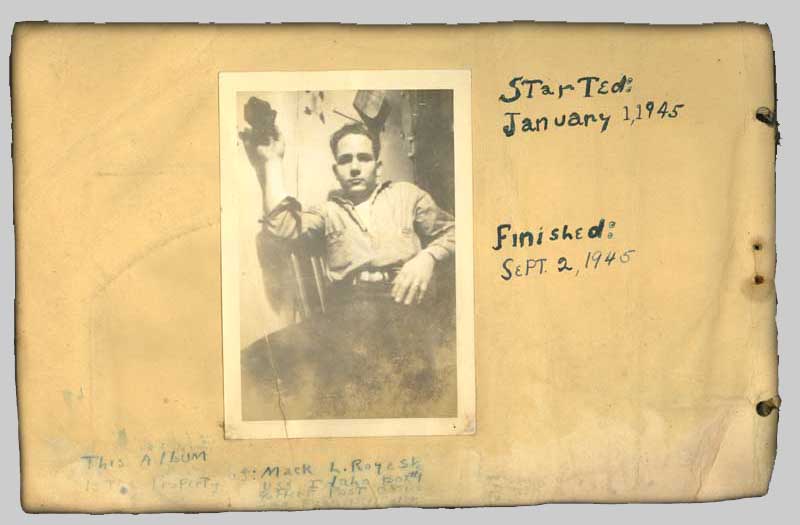 StarTEd:
January 1, 1945
FinishEd:
SEPT. 2, 1945
This Album
Is The Property of: Mack L.
USS Idaho
Post